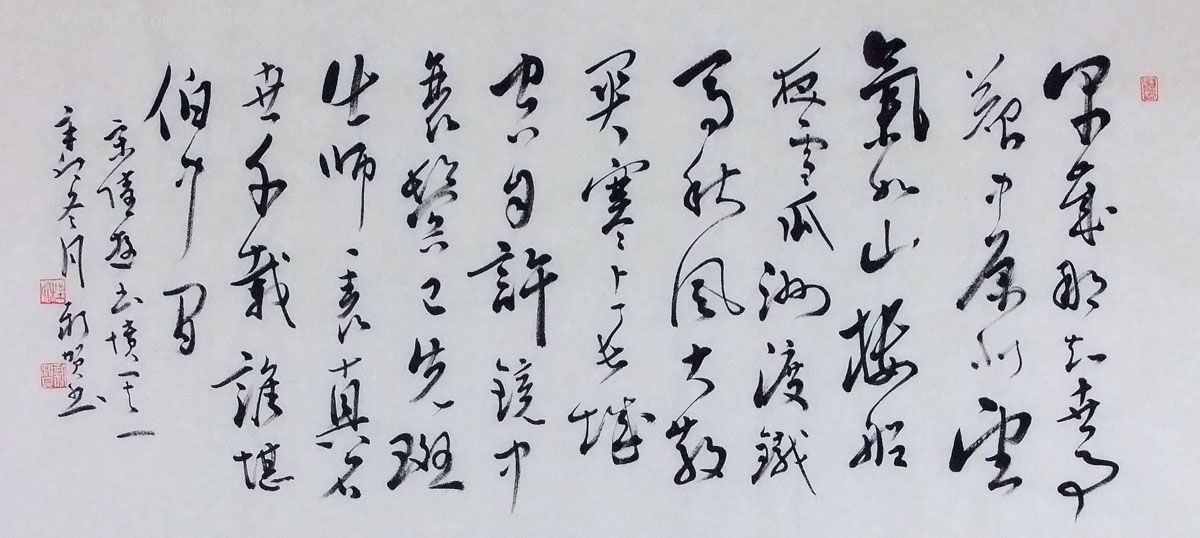 早歲那知世事
艱中原北望
氣如山樓船
夜雪瓜洲渡鐵
馬秋風大散
關塞上長城
空自許鏡中
衰鬢已先斑
出師一表真名
世千載誰堪
伯仲間
宋陸游書憤其一
辛卯冬月賀書